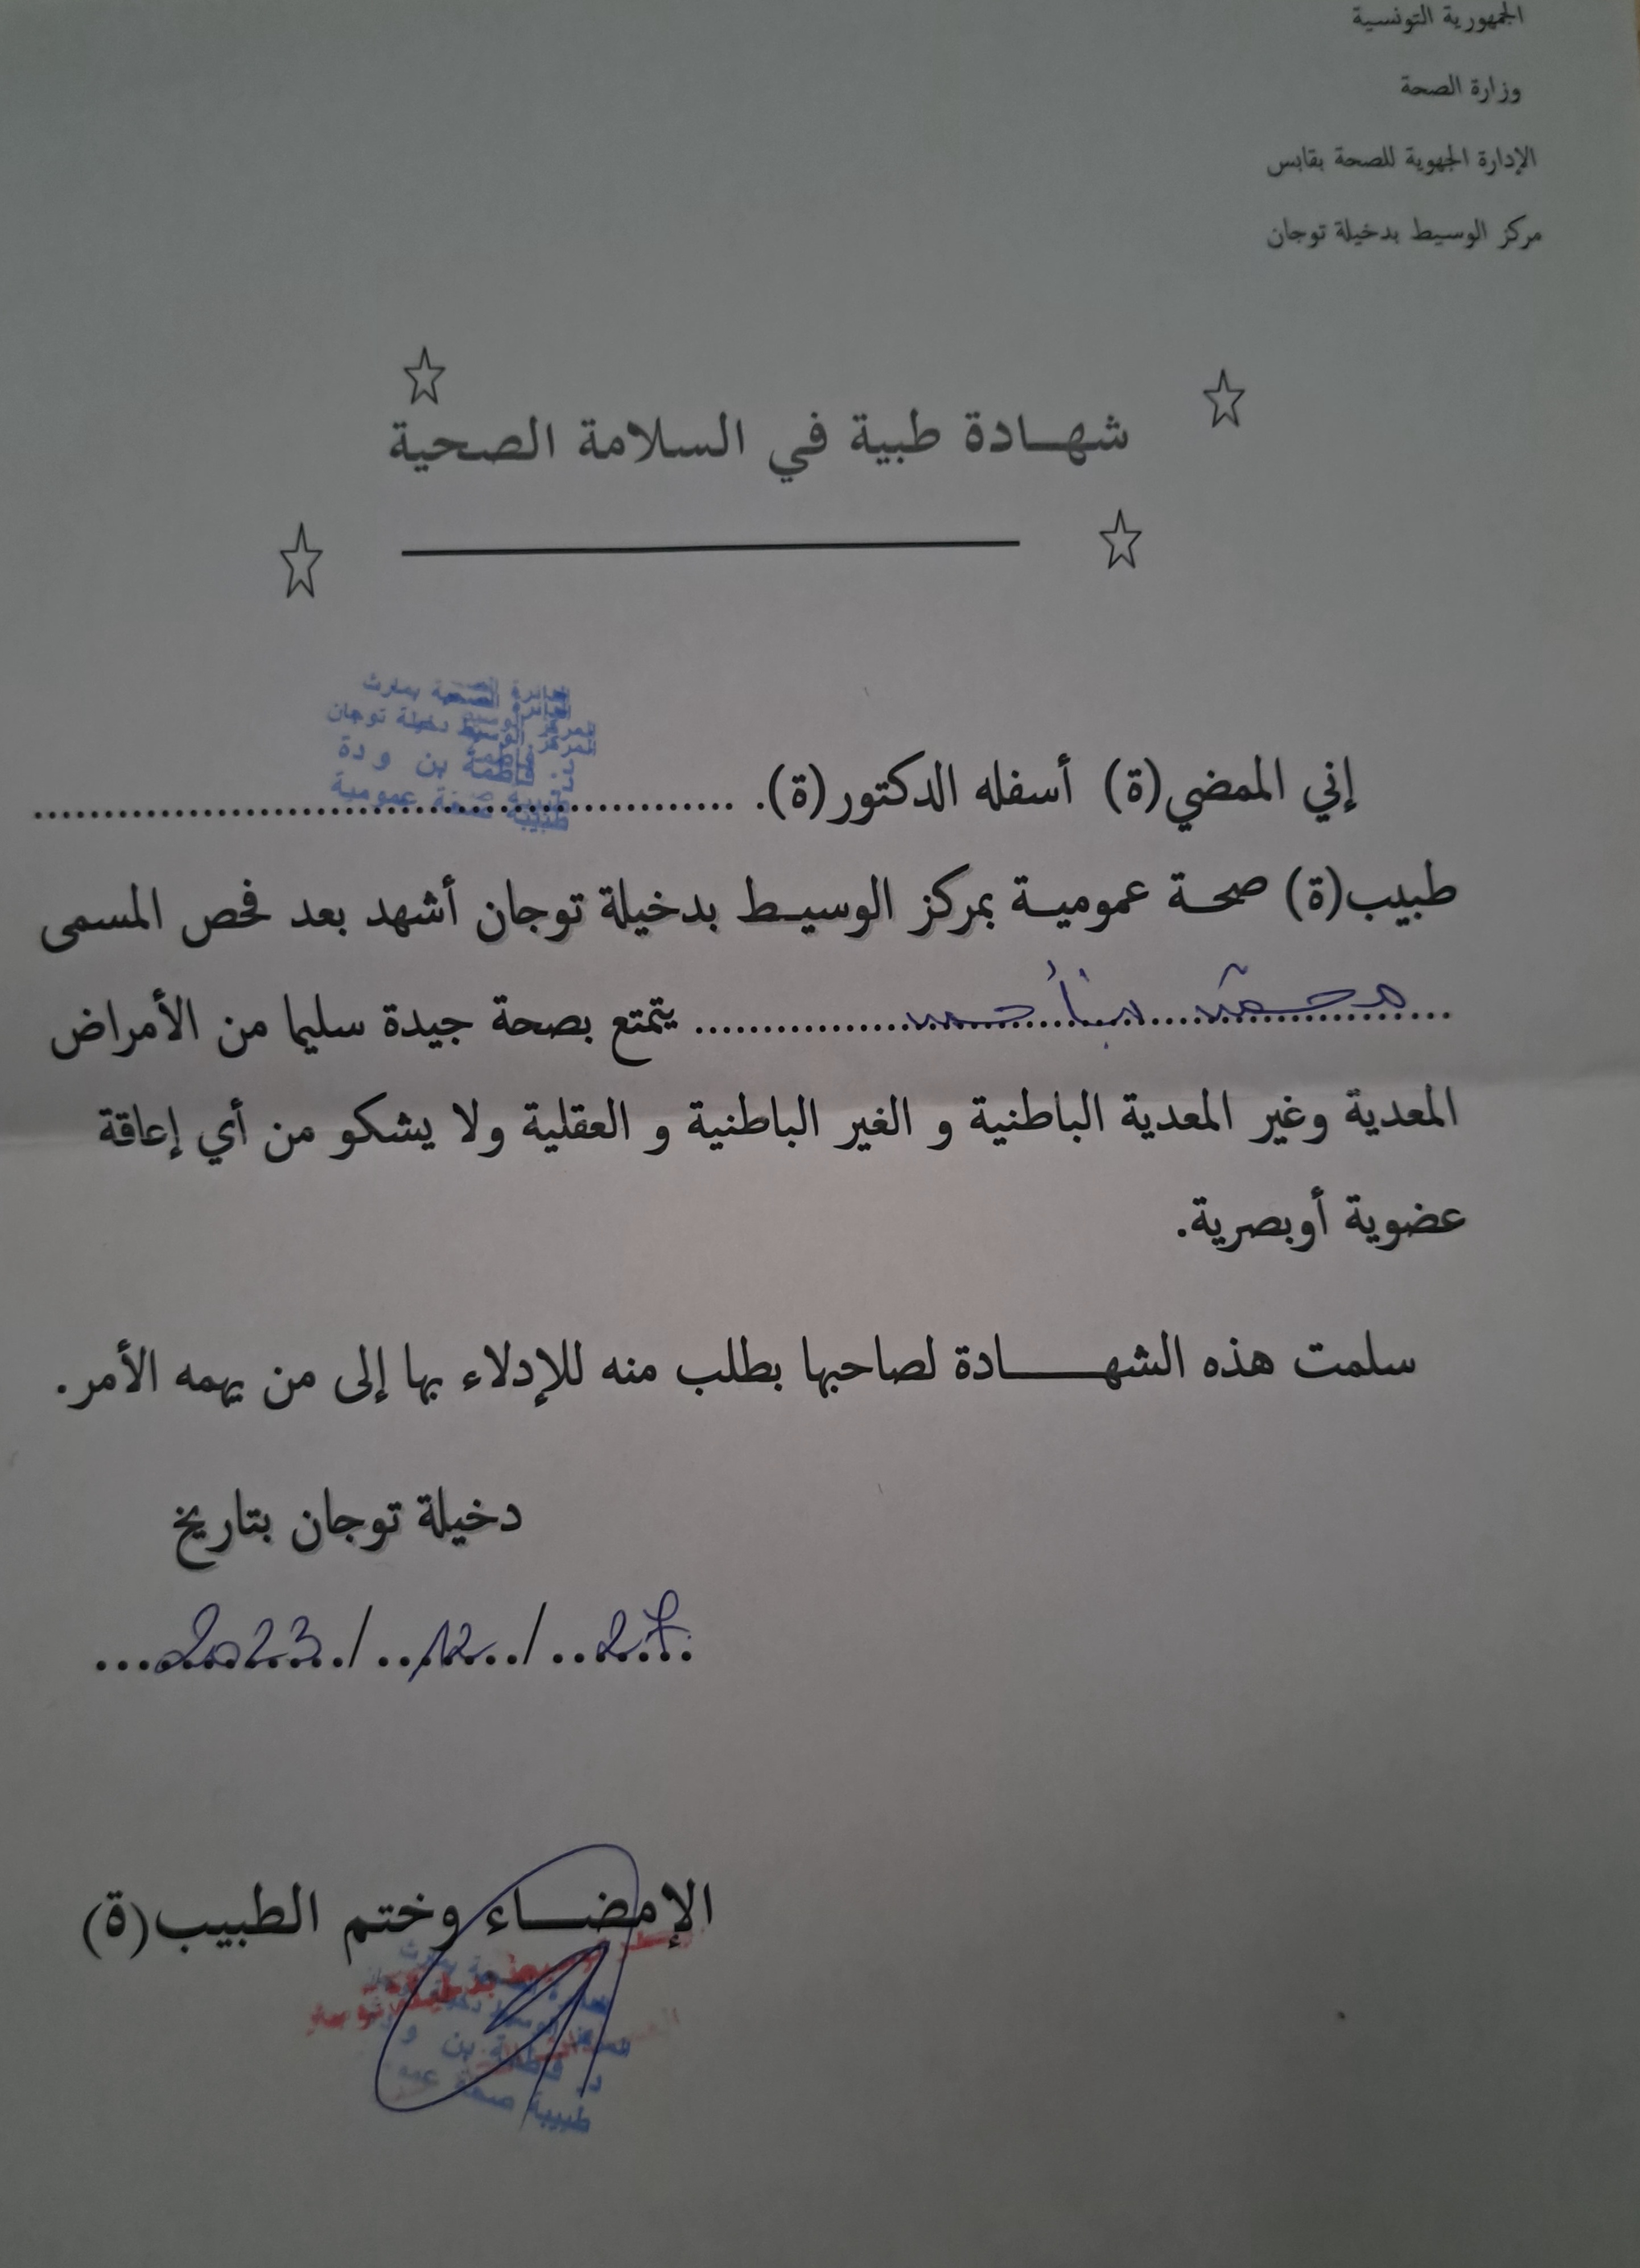 الجمهورية التونسية
وزارة الصحة
الإدارة الجهوية للصحة بقابس
مركز الوسيط بدخيلة توجان
شهـــادة طبية في السلامة الصحية
الدائرة الصحية بمارث
المركز الوسيط دخيلة توجان
د. فاطمة بن ودة
طبيبة صحة عمومية
إني الممضي(ة) أسفله الدكتور(ة). ........................................
طبيب(ة) صحـة عموميـة بمركز الوسيـط بدخيلة توجان أشهد بعد فحص المسمى
........................ يتمتع بصحة جيدة سليما من الأمراض
المعدية وغير المعدية الباطنية و الغير الباطنية و العقلية ولا يشكو من أي إعاقة
عضوية أوبصرية.
سلمت هذه الشهـــــــادة لصاحبها بطلب منه للإدلاء بها إلى من يهمه الأمر.
دخيلة توجان بتاريخ
27/12/2023
الإمضــاء وختم الطبيب(ة)
د. فاطمة بن
طبيبة صحة